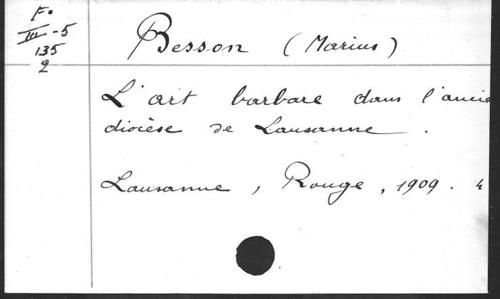 F.
III - 5
135
2
Besson (Marius)
L'art barbare dans l'ancie
diocèse de Lausanne.
Lausanne, Rouge, 1909. 4